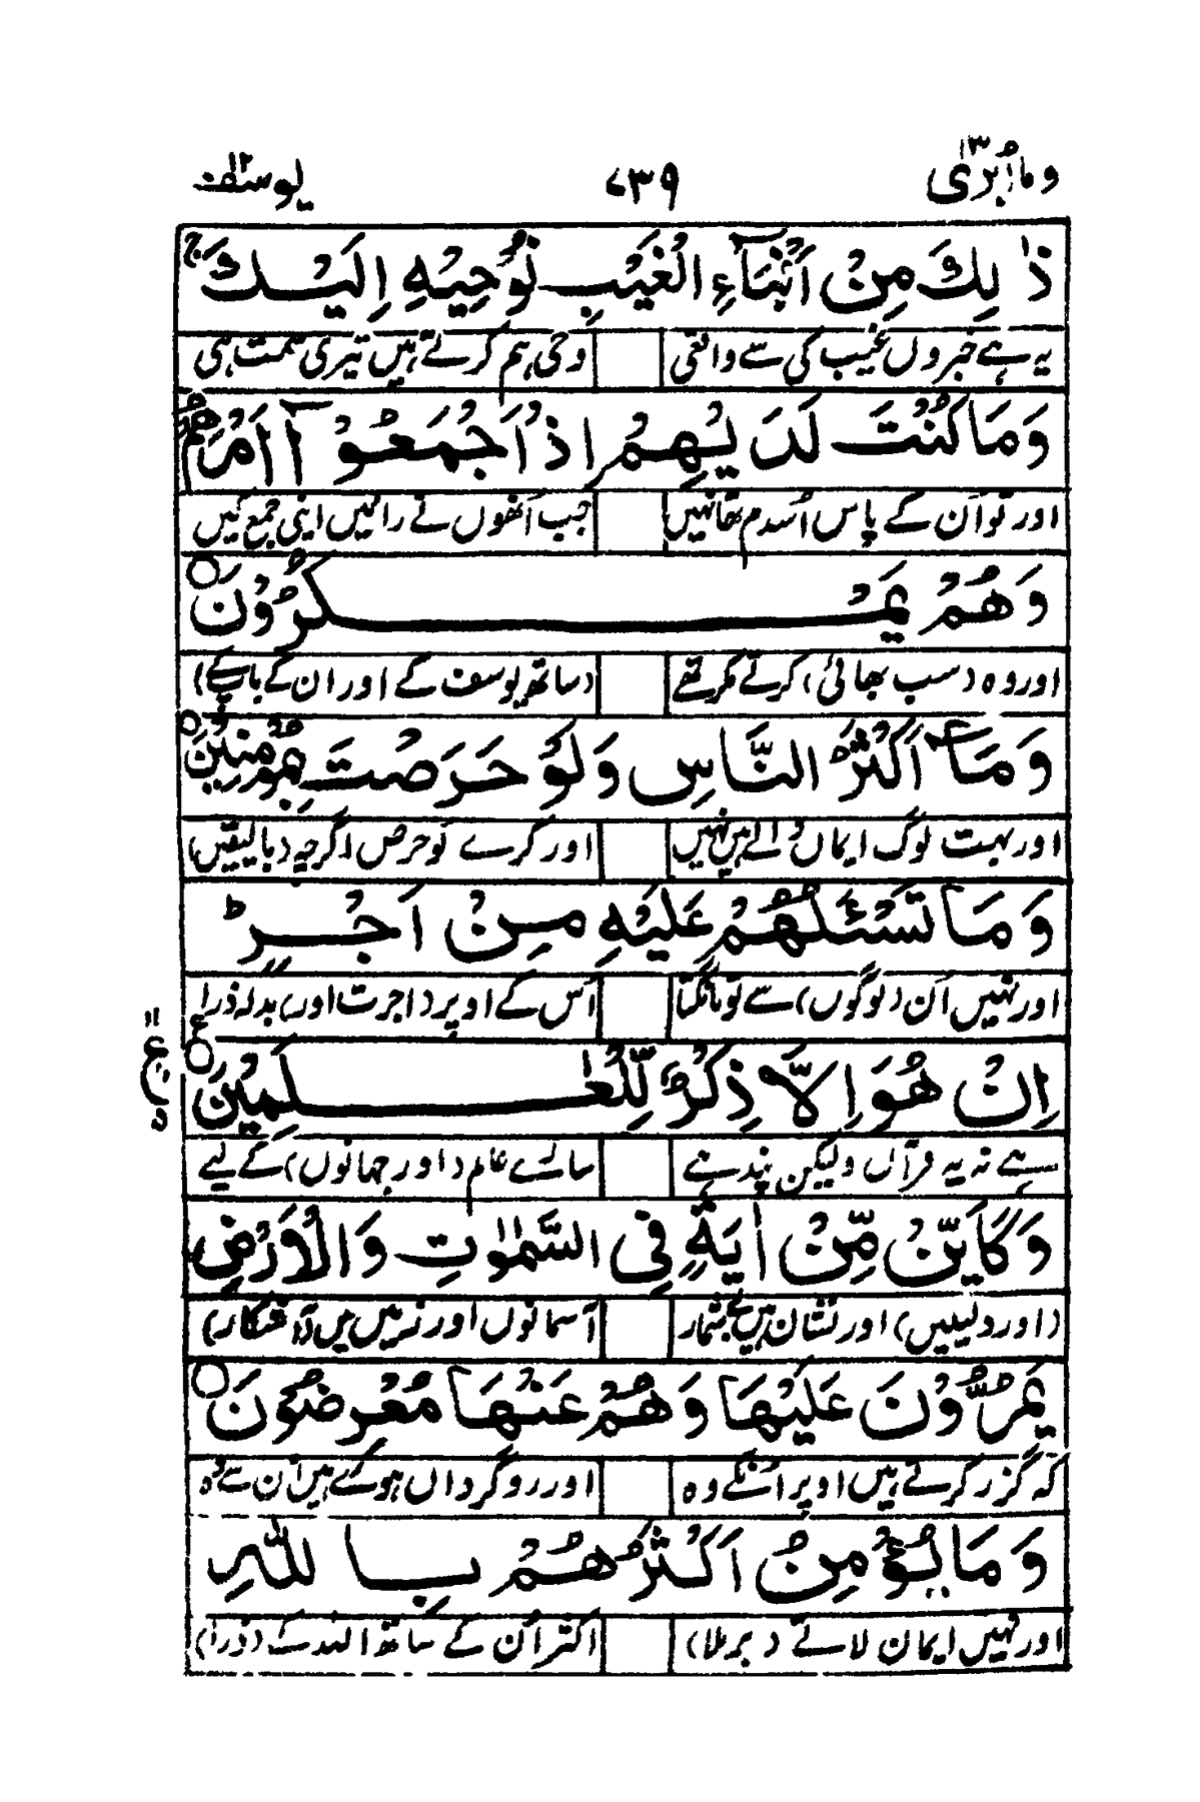 وما أبرئ ١٣ ٧٣٩ يوسف ١٢
ذٰلِكَ مِنْ اَنْۢبَآءِ الْغَيْبِ نُوْحِيْهِ اِلَيْكَ ۚ
یہ ہے خبروں غیب کی سے واقعی وحی ہم کرتے ہیں تیری سمت ہی
وَمَا كُنْتَ لَدَيْهِمْ اِذْ اَجْمَعُوْۤا اَمْرَهُمْ
اور تو اُن کے پاس اُسدم تھا نہیں جب اُنھوں نے رائیں اپنی جمع کیں
وَهُمْ يَمْكُرُوْنَ ○
اور وہ (سب بھائی) کرتے مکر تھے (ساتھ یوسف کے اور ان کے باپ کے)
وَمَاۤ اَكْثَرُ النَّاسِ وَلَوْ حَرَصْتَ بِمُؤْمِنِيْنَ ○
اور بہت لوگ ایمان والے ہیں نہیں اور کرے تو حرص اگرچہ (بالیقیں)
وَمَا تَسْـَٔلُهُمْ عَلَيْهِ مِنْ اَجْرٍ ؕ
اور نہیں اُن (لوگوں) سے تو مانگتا اُس کے اوپر (اجرت اور) بدلہ ذرا
اِنْ هُوَ اِلَّا ذِكْرٌ لِّلْعٰلَمِيْنَ ○ ع
١١ ع ٥
ہے نہ یہ قرآں ولیکن پند ہے سارے عالم (اور جہانوں) کے لیے
وَكَاَيِّنْ مِّنْ اٰيَةٍ فِى السَّمٰوٰتِ وَالْاَرْضِ
(اور دلیلیں) اور نشان ہیں بے شمار آسمانوں اور زمیں میں (آشکار)
يَمُرُّوْنَ عَلَيْهَا وَهُمْ عَنْهَا مُعْرِضُوْنَ ○
کہ گزر کرتے ہیں اوپر اُنکے وہ اور روگرداں ہو کے ہیں اُن سے وہ
وَمَا يُؤْمِنُ اَكْثَرُهُمْ بِاللّٰهِ
اور نہیں ایمان لاتے (برملا) اکثر اُن کے ساتھ اللہ کے (ذرا)